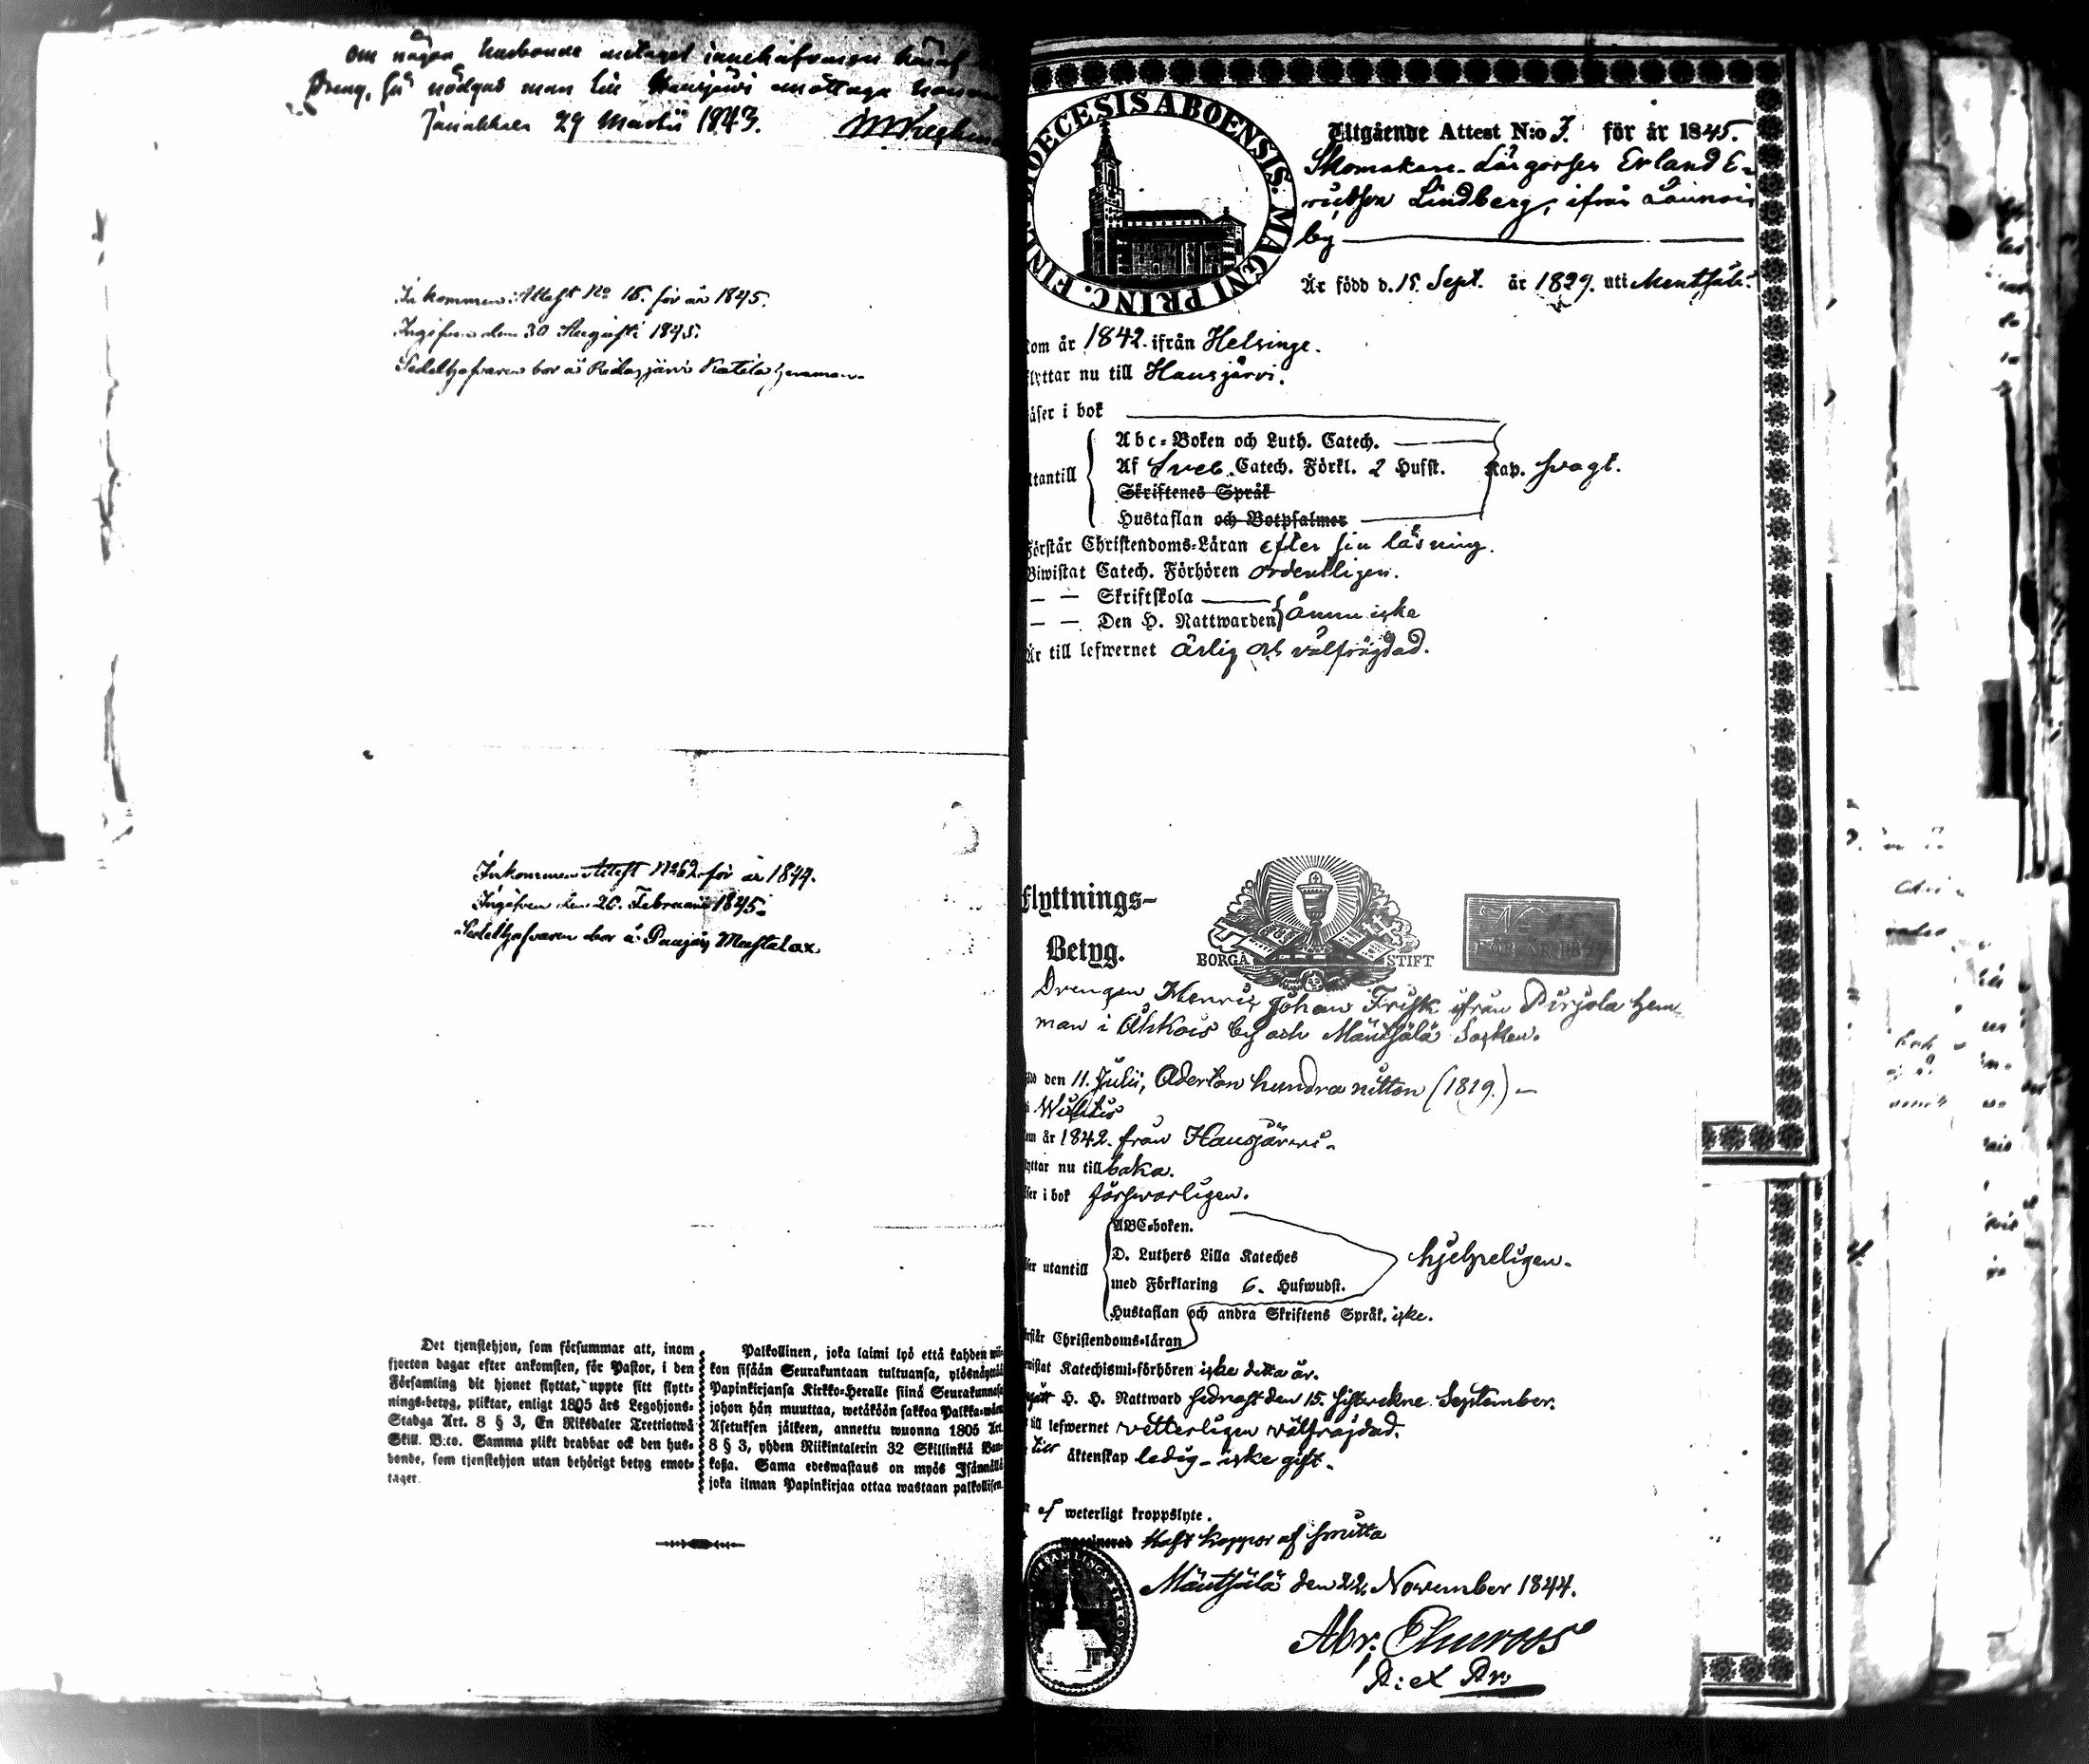 om någon husbonde antaget innehafvaren häraf
Dreng, så nödgas man till Hausjärvi mottaga honom
Janakkala 29 Martii 1843.
Inkommen Attest No 15. för år 1845.
Ingifven den 30 Augusti 1845.
Sedelhafvaren bor å Ridasjärvi Katila hemman.
Inkommen Attest No 62 för år 1844.
Ingifven den 20. Februarii 1845.
Sedelhafvaren bor å
Det tjenstehjon, som försummar att, inom
fjorton dagar efter ankomsten, för Pastor, i den
Församling dit hjonet flyttat, uppte sitt flytt-
nings-betyg, pliktar, enligt 1805 års Legohjons-
Stadga Art. 8 § 3, En Riksdaler Trettiotwå
Skill. B:co. Samma plikt drabbar ock den hus-
bonde, som tjenstehjon utan behörigt betyg emot-
taget.
Palkollinen, joka laimi lyö että kahden wii-
kon sisään Seurakuntaan tultuansa, ylösnäyttää
Papinkirjansa Kirkko-Heralle siinä Seurakunnasa
johon hän muuttaa, wetäköön sakkoa Palkka-wäen
Asetuksen jälkeen, annettu wuonna 1805 Art.
8 § 3, yhden Riikintalerin 32 Skillinkiä Ban-
kosa. Sama edeswastaus on myös Isännällä
joka ilman Papinkirjaa ottaa wastaan palkollisen.
DIOECESIS ABOENSIS. MAGNI PRINC. FINL
Utgående Attest N:o 7. för år 1845.
Skomakare-Lärgossen Erland E-
riksson Lindberg, ifrån
by
Är född d. 15. Sept. år 1829. uti Mentsälä.
kom år 1842. ifrån Helsinge.
flyttar nu till Hausjärvi.
läser i bok
Abc-Boken och Luth. Catech.
utantill Af Sveb. Catech. Förkl. 2 Hufst. Kap. svagt.
Skriftenes Språk
Hustaflan och Botpsalmer
Förstår Christendoms-Läran efter sin läsning.
Biwistat Catech. Förhören ordentligen.
— — Skriftskola
— — Den H. Nattwarden ännu icke
Är till lefwernet ärlig och välfrägdad.
flyttnings-
Betyg.
BORGÅ STIFT
FÖR ÅR 1844
Drengen Henric Johan Frisk ifrån Pirjola hem
man i Ahkois by och Mäntsälä Socken.
född den 11. Julii, Aderton hundra nitton (1819.) —
om år 1842. från Hausjärvi.
flyttar nu tillbaka.
läser i bok försvarligen.
ABC-boken.
D. Luthers Lilla Kateches
utantill med Förklaring 6. Hufwudst. hjelpeligen.
Hustaflan och andra Skriftens Språk. icke.
förstår Christendoms-läran
bewistat Katechismi-förhören icke detta år.
H. H. Nattward sednast den 15. sistvekne September.
till lefwernet vetterligen välfrägdad.
till äktenskap ledig - icke gift.
ej weterligt kroppslyte.
vaccinerad haft koppor af smitta
Mäntsälä den 22. November 1844.